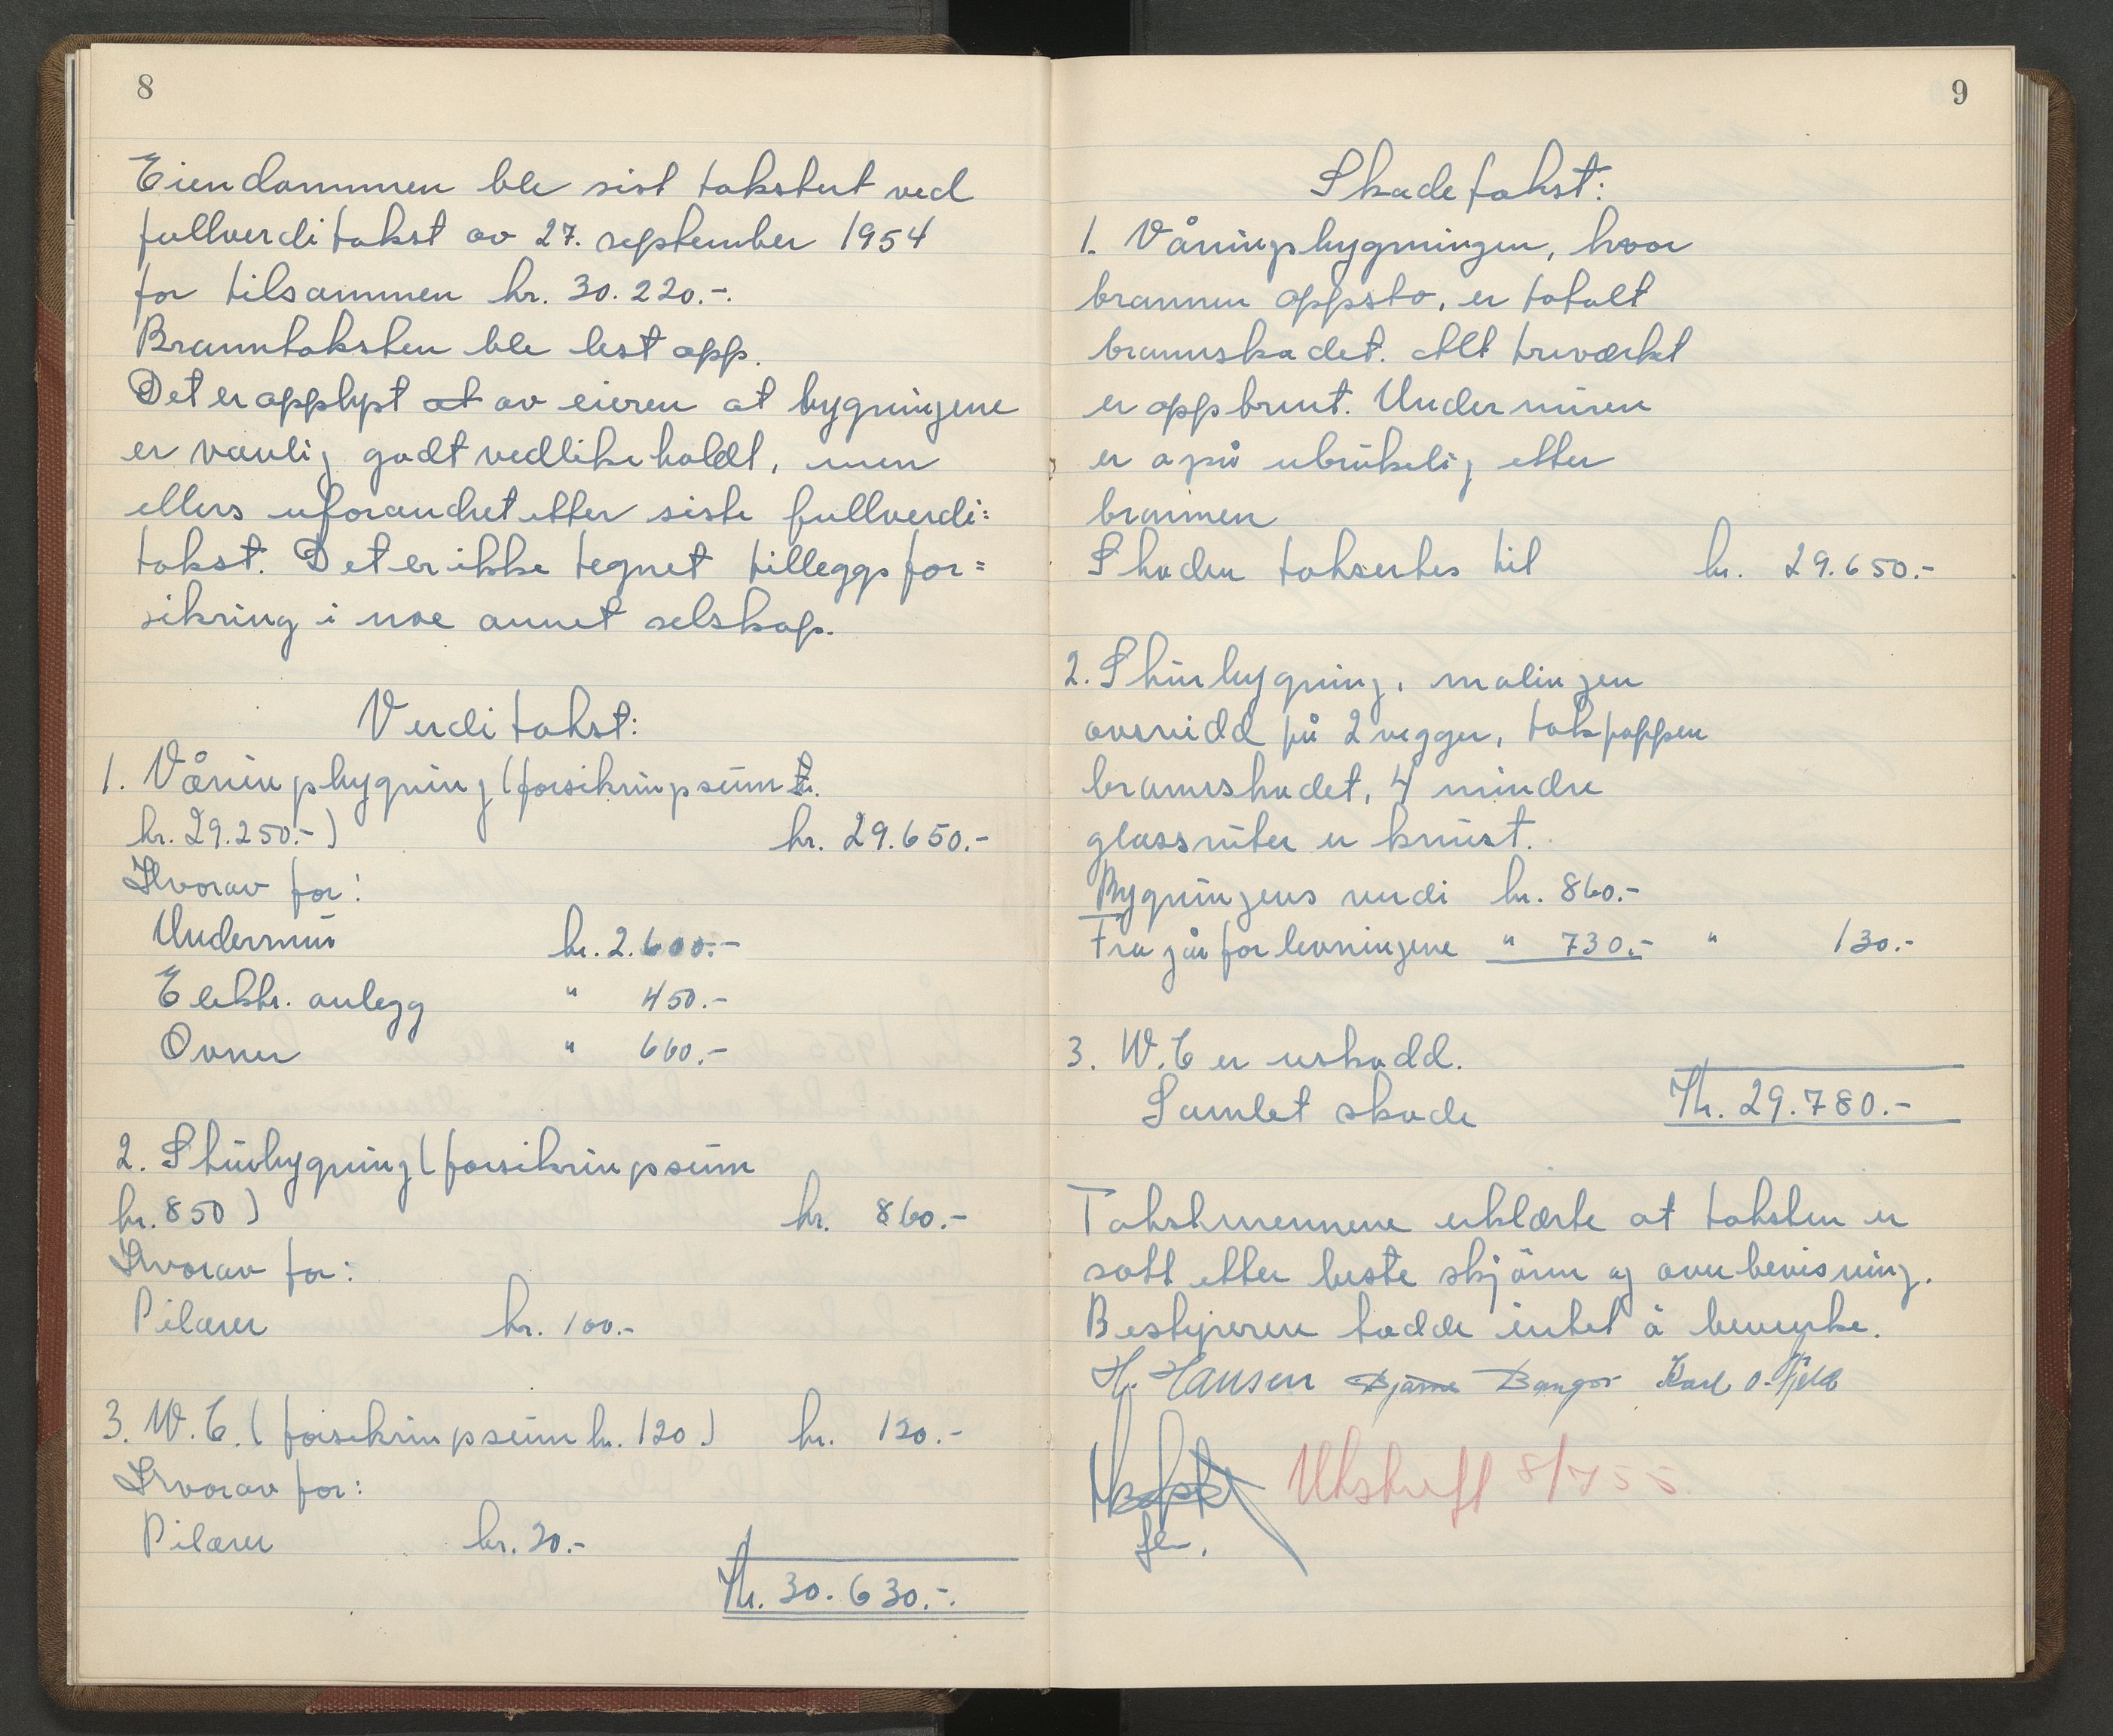 8
Eiendommen ble sist takstert ved
fullverditakst av 27. september 1954
for tilsammen kr. 30.220.-.
Branntaksten ble lest opp.
Det er opplyst at av eieren at bygningene
er vanlig godt vedlikeholdt, men
ellers uforandret etter siste fullverdi=
takst. Det er ikke tegnet tilleggsfor=
sikring i noe annet selskap.
Verditakst:
1. Våningsbygning (forsikringssum kr.
kr. 29.250.-) kr. 29.650.-
Hvorav for:
Undermur kr. 2.600.-
Elektr. anlegg " 450.-
Ovner " 660.-
2. Skurbygning (forsikringssum
kr. 850) kr. 860.-
Hvorav for:
Pilarer kr. 100.-
3. W.C. (forsikringssum kr. 120) kr. 120.-
Hvorav for:
Pilarer kr. 20.-
Kr. 30.630.-.
9
Skadetakst:
1. Våningsbygningen, hvor
brannen oppsto, er totalt
brannskadet. Alt treværket
er oppbrent. Undermuren
er også ubrukelig etter
brannen
Skaden taksertes til kr. 29.650.-
2. Skurbygning, malingen
avsvidd på 2 vegger, takpappen
brannskadet, 4 mindre
glassruter er knust.
Bygningens verdi kr. 860.-
Fra går for levningene " 730.- " 130.-
3. W.C er uskadd.
Samlet skade Kr. 29.780.-
Takstmennene erklærte at taksten er
satt etter beste skjønn og overbevisning.
Bestyreren hadde intet å bemerke.
H. Hansen Bjarne Bangor Karl O. Fjeld
fm.
Utskrift 8/7 55